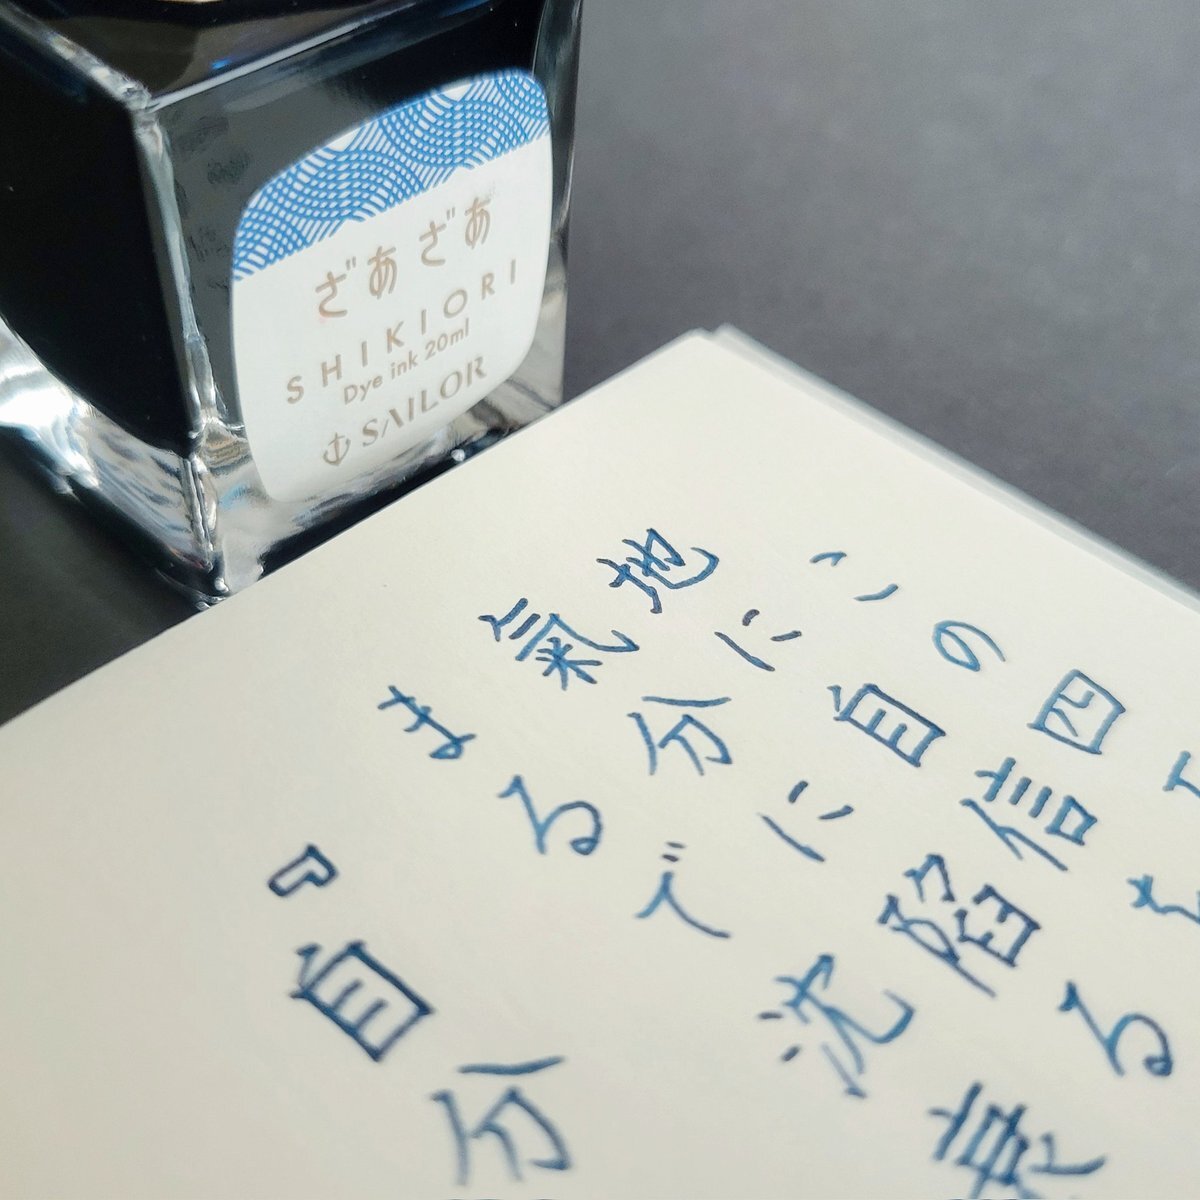 ざあざあ
SHIKIORI
Dye ink 20ml
SAILOR
この四
地に自信を
氣分に陥る
まるで沈衰
『自分